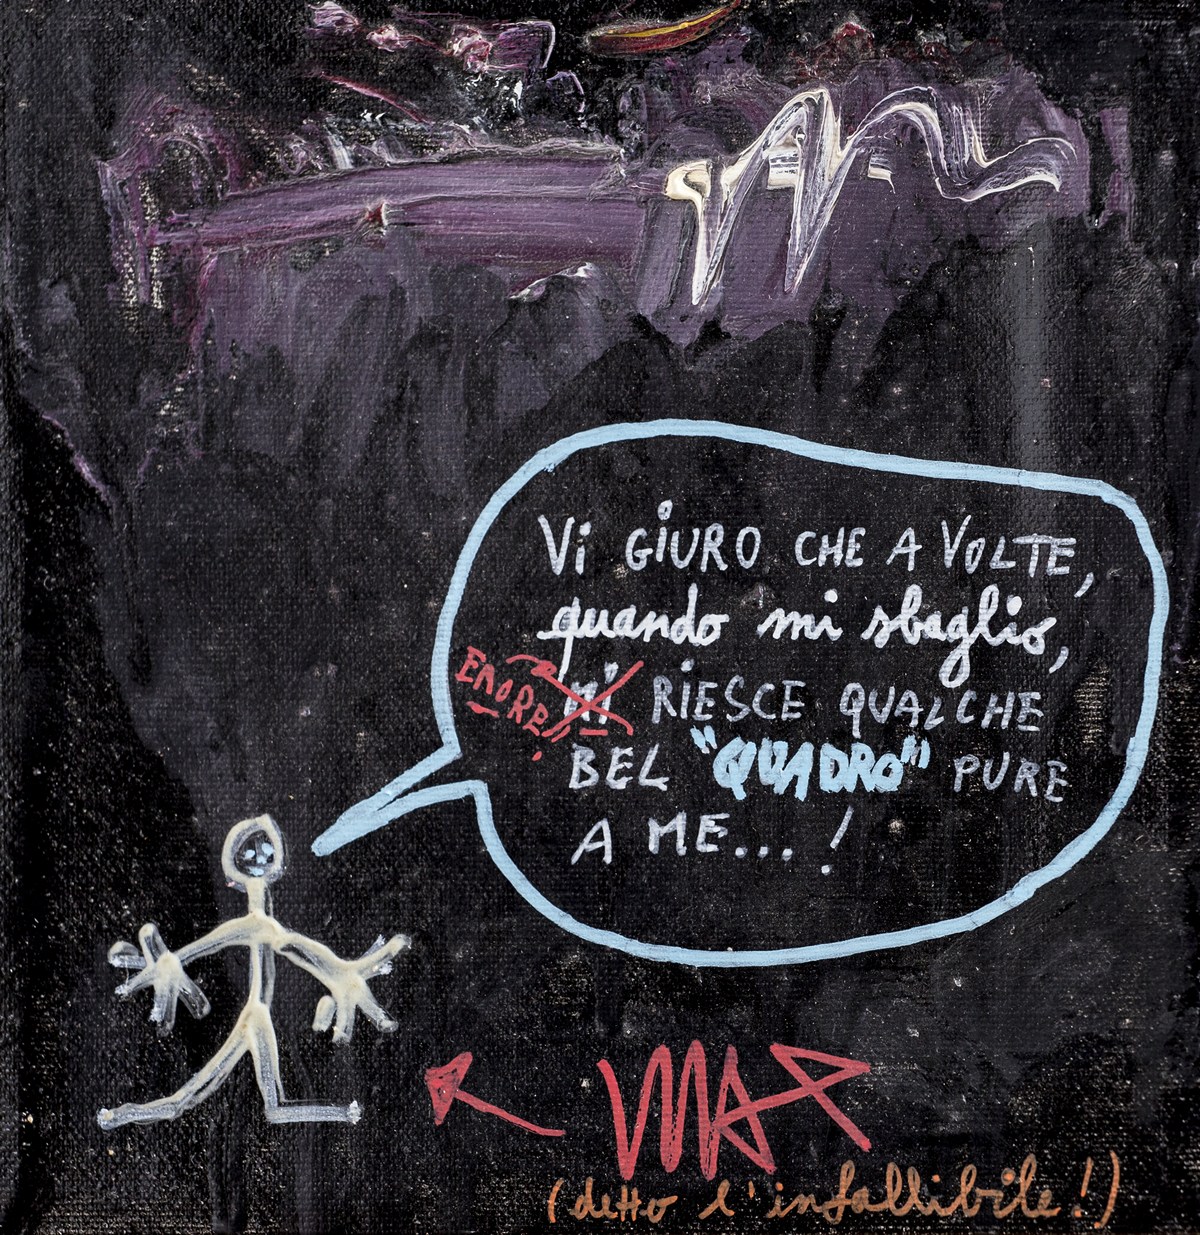 Vi GiURO CHE A VOLTE,
quando mi sbaglio,
ERORE! ni RiESCE QUALCHE
BEL "QUADRO" PURE
A ME... !
MAR
(detto l'infallibile!)